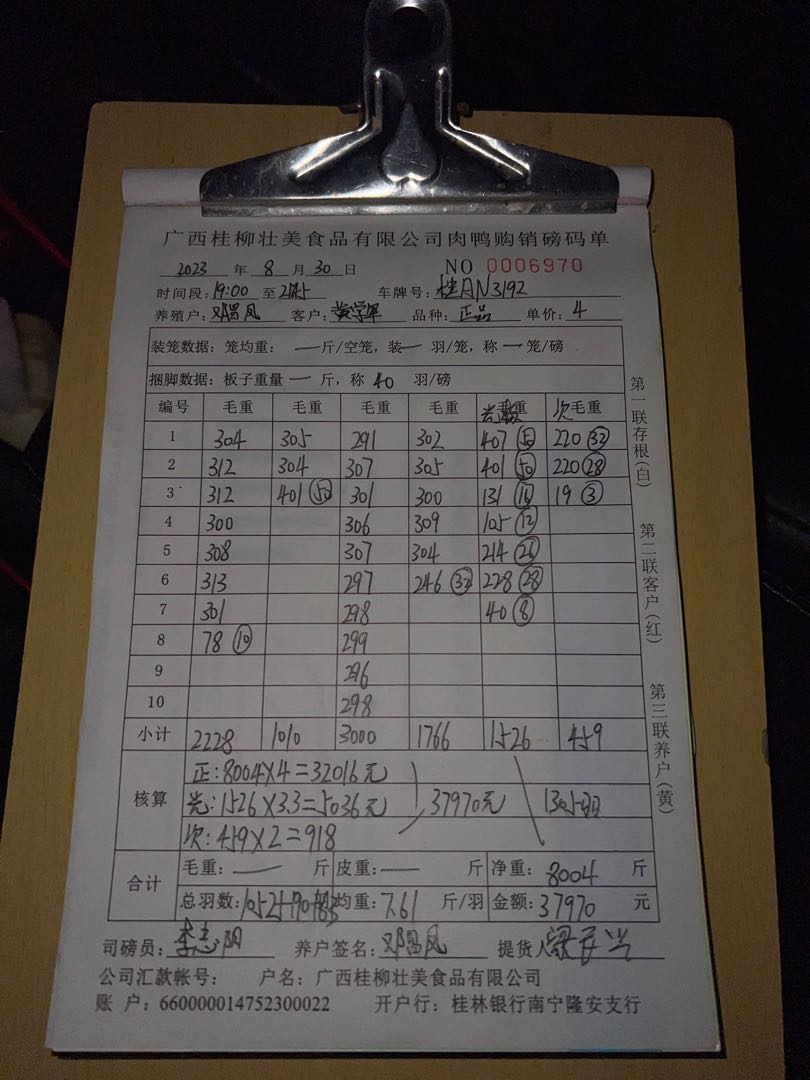 广西桂柳壮美食品有限公司肉鸭购销磅码单
2023 年 8 月 30 日 NO 0006970
时间段: 19:00 至 2145 车牌号: 桂AN3192
养殖户: 邓昌凤 客户: 黄学军 品种: 正品 单价: 4
装笼数据: 笼均重: — 斤/空笼, 装 — 羽/笼, 称 — 笼/磅
捆脚数据: 板子重量 — 斤, 称 40 羽/磅
编号 毛重 毛重 毛重 毛重 毛重 次毛重
1 304 305 291 302 407 (50) 220 (32)
2 312 304 307 305 401 (50) 220 (28)
3 312 401 (50) 301 300 131 (16) 19 (3)
4 300 306 309 105 (12)
5 308 307 304 214 (26)
6 313 297 246 (32) 228 (28)
7 301 298 40 (8)
8 78 (10) 299
9 296
10 298
小计 2228 1010 3000 1766 1526 459
核算
正: 8004×4=32016元
光: 1526×3.3=5036元 37970元 1305羽
次: 459×2=918
合计
毛重: — 斤 皮重: — 斤 净重: 8004 斤
总羽数: 1052+190+63 均重: 7.61 斤/羽 金额: 37970 元
司磅员: 李志阴 养户签名: 邓昌凤 提货人
公司汇款帐号: 户名: 广西桂柳壮美食品有限公司
账 户: 660000014752300022 开户行: 桂林银行南宁隆安支行
第一联存根(白)
第二联客户(红)
第三联养户(黄)